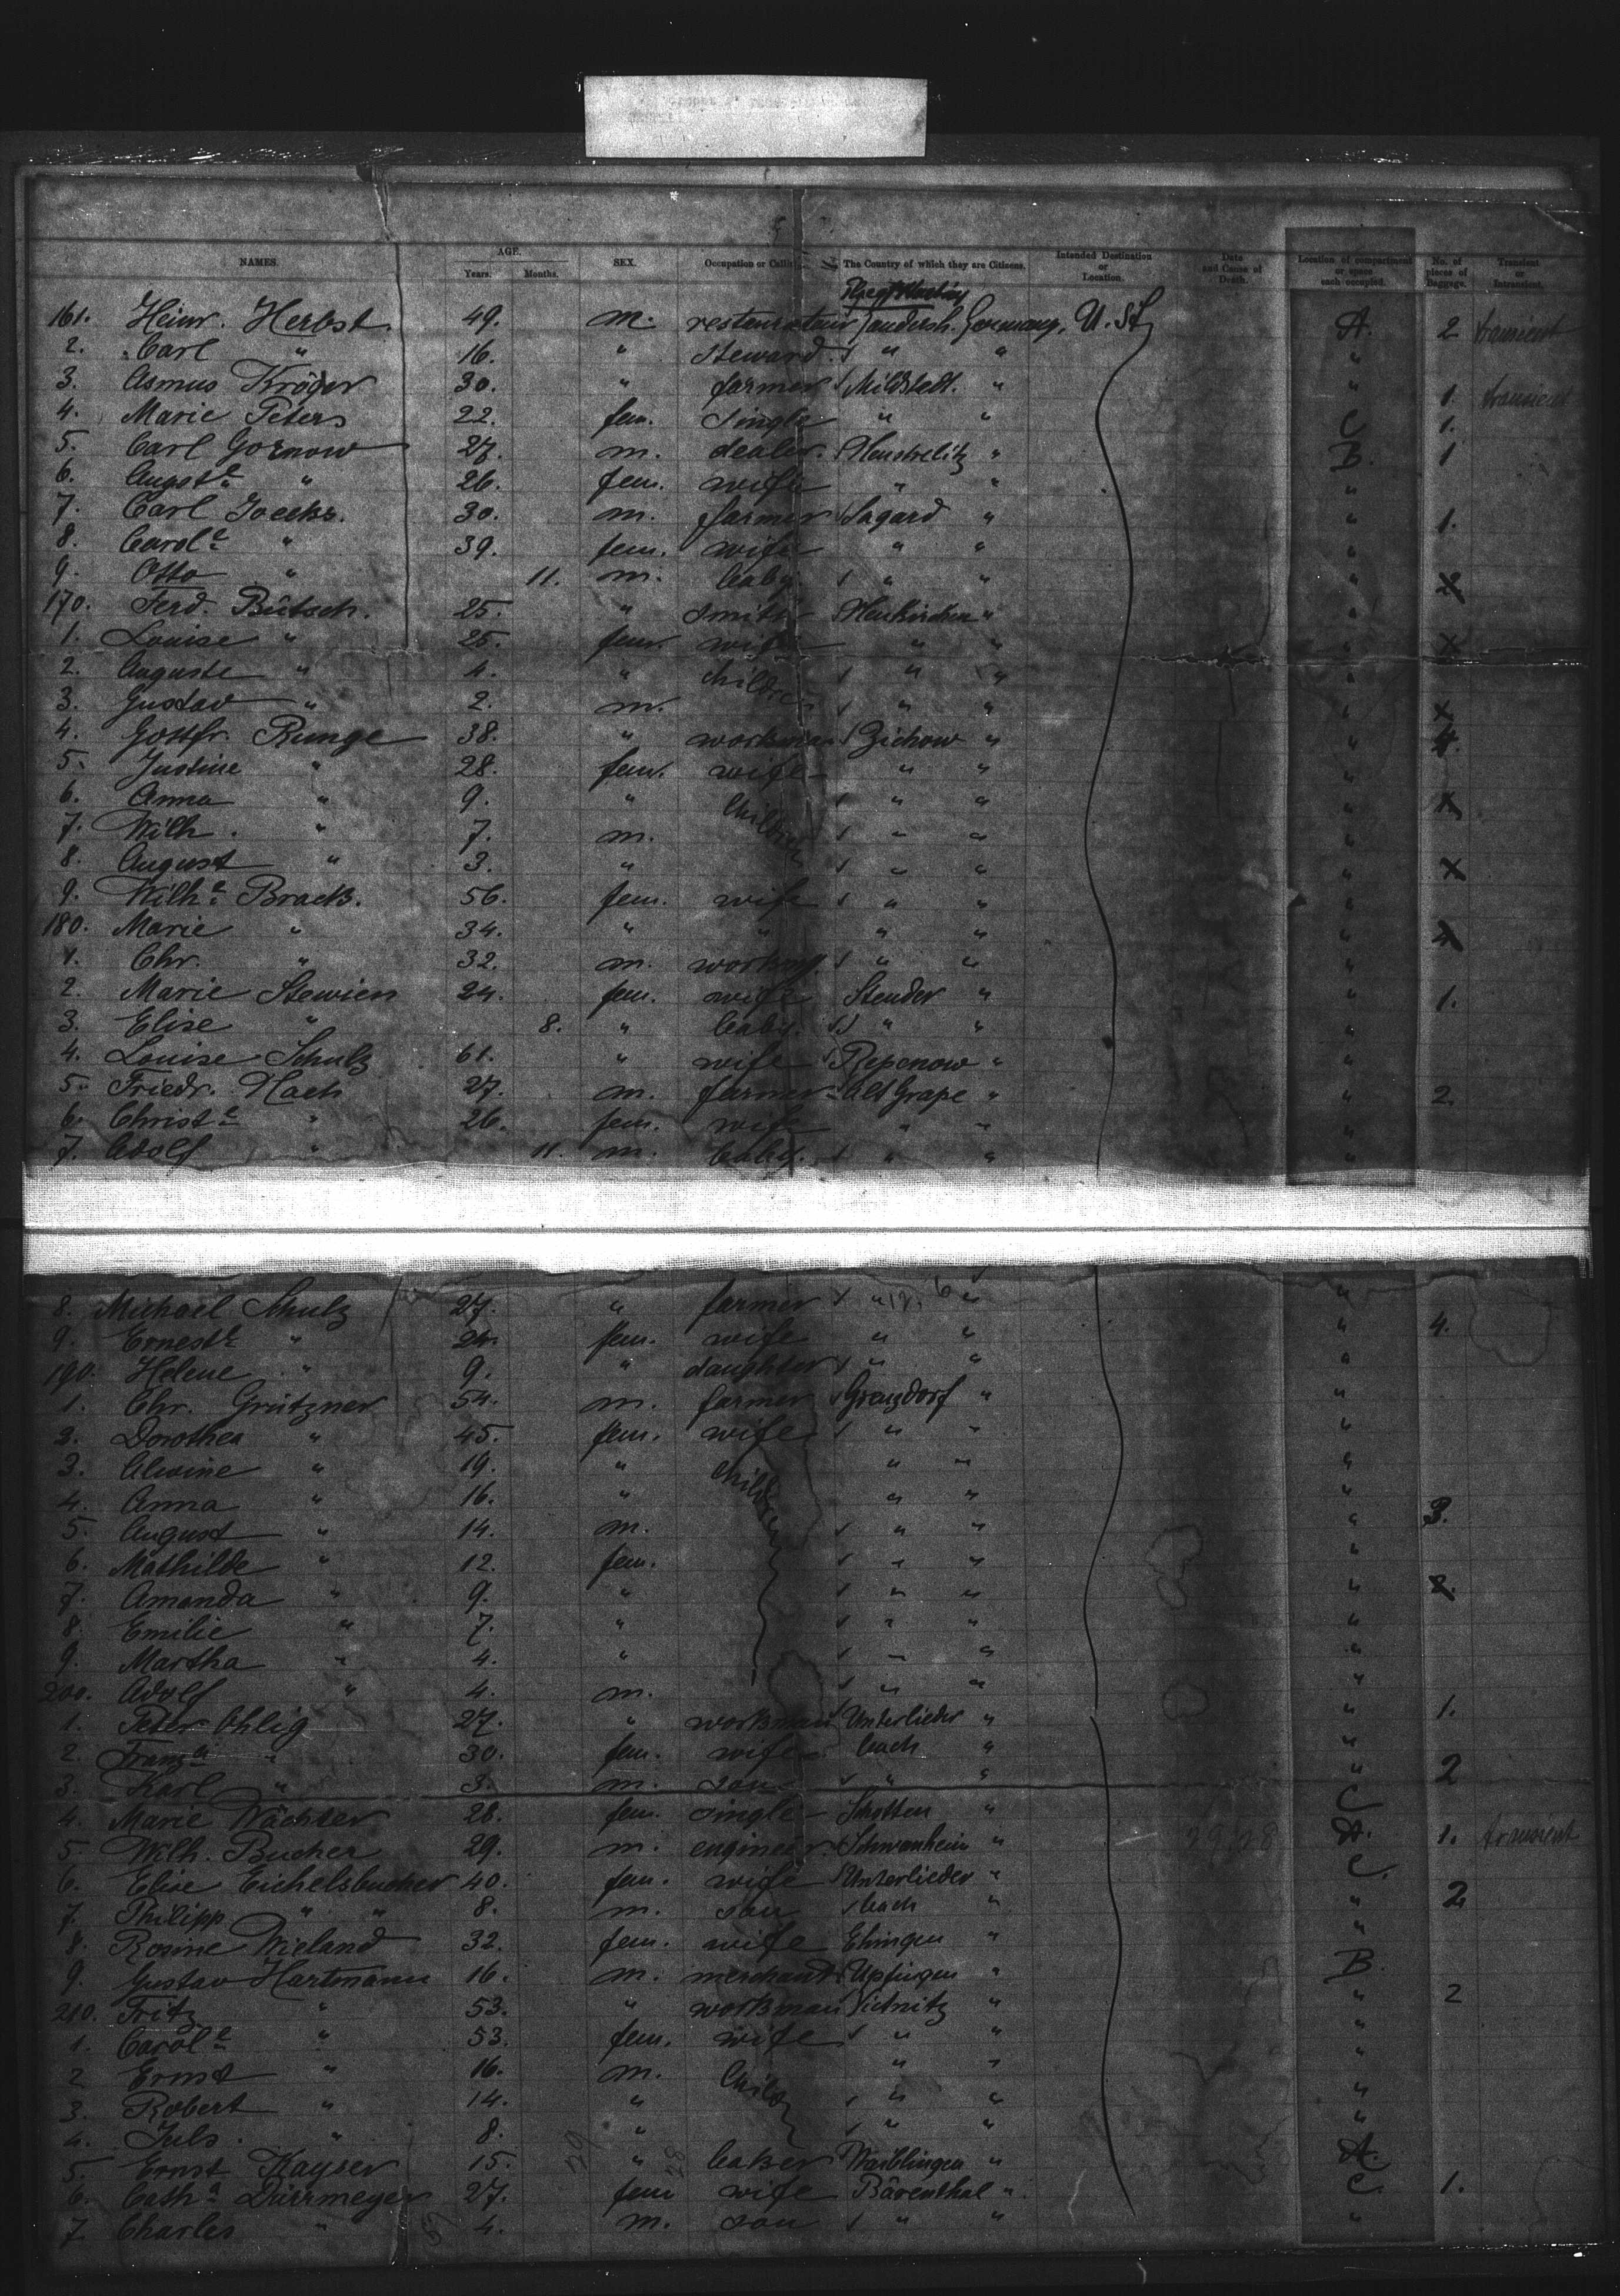 NAMES. AGE. Years. Months. SEX. Occupation or Calling. The Country of which they are Citizens. Intended Destination or Location. Date and Cause of Death. Location of compartment or space each occupied. No. of pieces of Baggage. Transient or Intransient.
161. Heinr. Herbst. 49. m. restaurateur Germany, U. St. A. 2 transient
2. Carl " 16. " steward. " " "
3. Asmus Kröger 30. " farmer Mildstedt. " " 1. transient
4. Marie Peters 22. fem. single " " C 1.
5. Carl Gornow 27. m. dealer. Neustrelitz " B. 1
6. August.e " 26. fem. wife " " "
7. Carl Joecks. 30. m. farmer Sagard " " 1.
8. Carol.e " 39. fem. wife " " "
9. Otto " 11. m. baby. " " "
170. Ferd. Bütsch. 25. " smith Neukirchen " "
1. Louise " 25. fem. wife " " "
2. Auguste " 4. " children " " "
3. Gustav " 2. m. " " "
4. Gottfr. Runge 38. " workman Zichow " "
5. Justine " 28. fem. wife " " "
6. Anna " 9. " children " " "
7. Wilh. " 7. m. " " "
8. August " 3. " " " "
9. Wilh.e Brack. 56. fem. wife " " "
180. Marie " 34. " " " " "
1. Chr. " 32. m. workmg. " " "
2. Marie Stewien 24. fem. wife " " 1.
3. Elise " 8. " baby. " " "
4. Louise Schulz 61. " wife Repenow " "
5. Friedr. 27. m. farmer Alt Grape " " 2.
6. Christ.e " 26. fem. wife " " "
7. Adolf " 11. m. baby. " " "
8. Michael Schulz 27. " farmer " " "
9. Ernest.e " 24. fem. wife " " " 4.
190. Helene " 9. " daughter " " "
1. Chr. Grützner 54. m. farmer Grenzdorf " "
2. Dorothea " 45. fem. wife " " "
3. Alwine " 19. " children " " "
4. Anna " 16. " " " "
5. August " 14. m. " " " 3.
6. Mathilde " 12. fem. " " "
7. Amanda " 9. " " " " 2.
8. Emilie " 7. " " " "
9. Martha " 4. " " " "
200. Adolf " 4. m. " " "
1. Peter Ohlig 27. " workman Unterlieder " " 1.
2. Franz.a " 30. fem. wife bach " " 2
3. Karl " 3. m. son " " "
4. Marie Wächter 28. fem. single Schotten " C
5. Wilh. Bucher 29. m. engineer. Schwanheim " A. 1. transient
6. Elise Eichelsbucher 40. fem. wife Unterlieder " C.
7. Philipp " " 8. m. son bach " " 2
8. Rosine Wieland 32. fem. wife Ehingen " "
9. Gustav Hartmann 16. m. merchant Upfingen " B.
210. Fritz " 53. " workman " " 2
1. Carol.e " 53. fem. wife " " "
2 Ernst " 16. m. child " " "
3. Robert " 14. " " " "
4. Juls. " 8. " " " "
5. Ernst Kayser 15. " baker Waiblingen " A.
6. Cath.a Dürrmeyer 27. fem wife Bärenthal " C. 1.
7. Charles " 4. m. son " " "